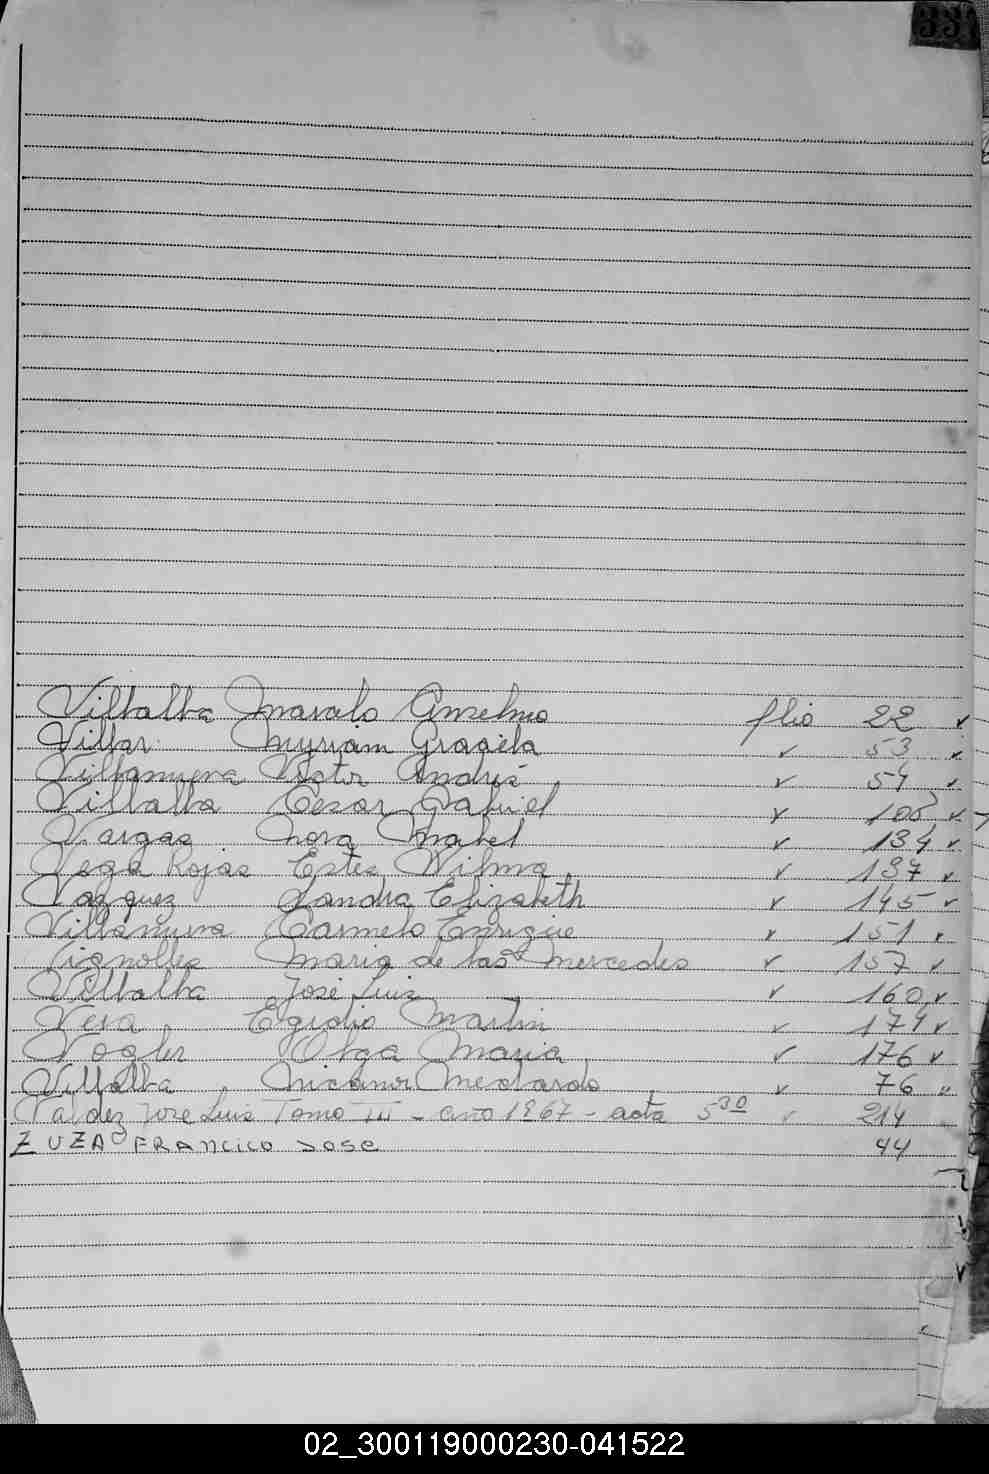 Villalba Marcelo Anselmo flio 22 ✓
Villar Myriam Graciela ✓ 53 ✓
Villanueva Victor Andrés ✓ 54 ✓
Villalba Cesar Gabriel ✓ 108 ✓
Vargas Nora Mabel ✓ 134 ✓
Vega Rojas Ester Wilma ✓ 137 ✓
Vazquez Sandra Elizabeth ✓ 145 ✓
Villanueva Carmelo Enrique ✓ 151 ✓
Vignolles Maria de las Mercedes ✓ 157 ✓
Villalba José Luis ✓ 160 ✓
Vera Egidio Martin ✓ 174 ✓
Vogler Olga Maria ✓ 176 ✓
Villalba Nicanor Medardo ✓ 76 "
Valdez Jose Luis Tomo III - año 1967 - acta 530 ✓ 214
ZUZA FRANCICO JOSE 44
02_300119000230-041522